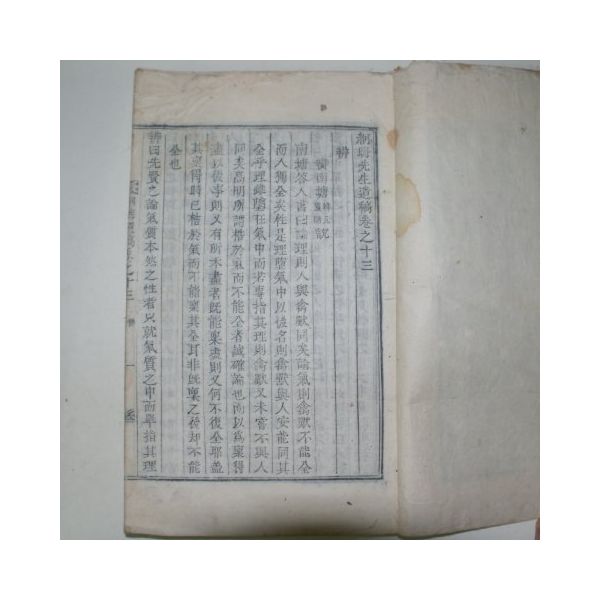 先生遺稿卷之十三
辨
南塘
南塘答人書曰論理則人與禽獸同矣論氣則禽獸不能全
而人獨全矣性是理墮氣中以後名則禽獸與人安能同其
全乎理雖墮在氣中而若專指其理則禽獸又未嘗不與人
同矣高明所謂梏於氣而不能全者誠確論也而以爲稟得
以後事則又有所未盡者旣能稟盡則又何不復全耶蓋
其稟得時已梏於氣而不能稟其全耳非旣稟之後却不能
全也
辨曰先賢之論氣質本然之性者只就氣質之中而單指其理